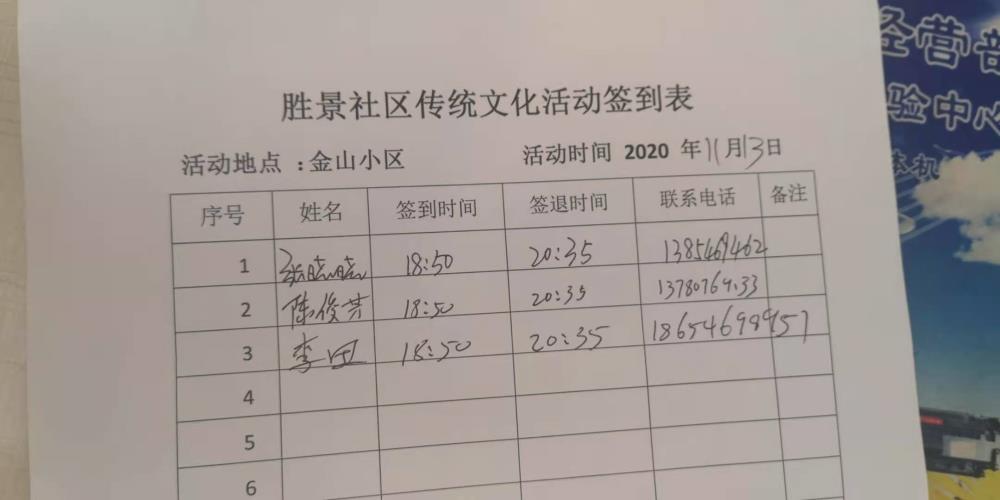 胜景社区传统文化活动签到表
活动地点 :金山小区 活动时间 2020 年11月13日
序号 姓名 签到时间 签退时间 联系电话 备注
1 张晓晓 18:50 20:35 1385469462
2 陈俊芳 18:50 20:35
3 李 18:50 20:35
4
5
6
经营部
验中心
体机